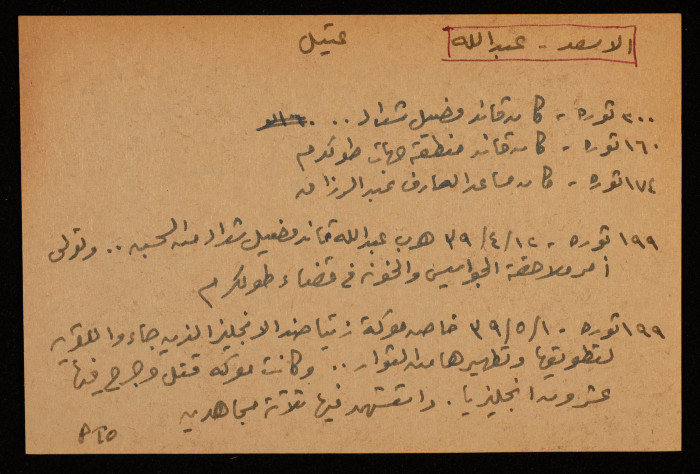 الاسعد - عبدالله عتيل
٢٠٠ ثوره - كان قائد فصيل شداد ..
١٦٠ ثوره - كان قائد منطقة جهات طولكرم
١٧٤ ثوره - كان مساعد العارف عبد الرزاق
١٩٩ ثوره - ٣٩/٤/١٢ هرب عبدالله قائد فصيل شداد من الحبس .. وتولى
أمر ملاحقة الجواسيس والخونه في قضاء طولكرم
١٩٩ ثوره - ٣٩/٥/١٠ خاض معركة زيتا ضد الانجليز الذين جاءوا القريه
لتطويقها وتطهيرها من الثوار .. وكانت معركه قتل وجرح فيها
عشرون انجليزيا . واستشهد فيها ثلاثة مجاهدين